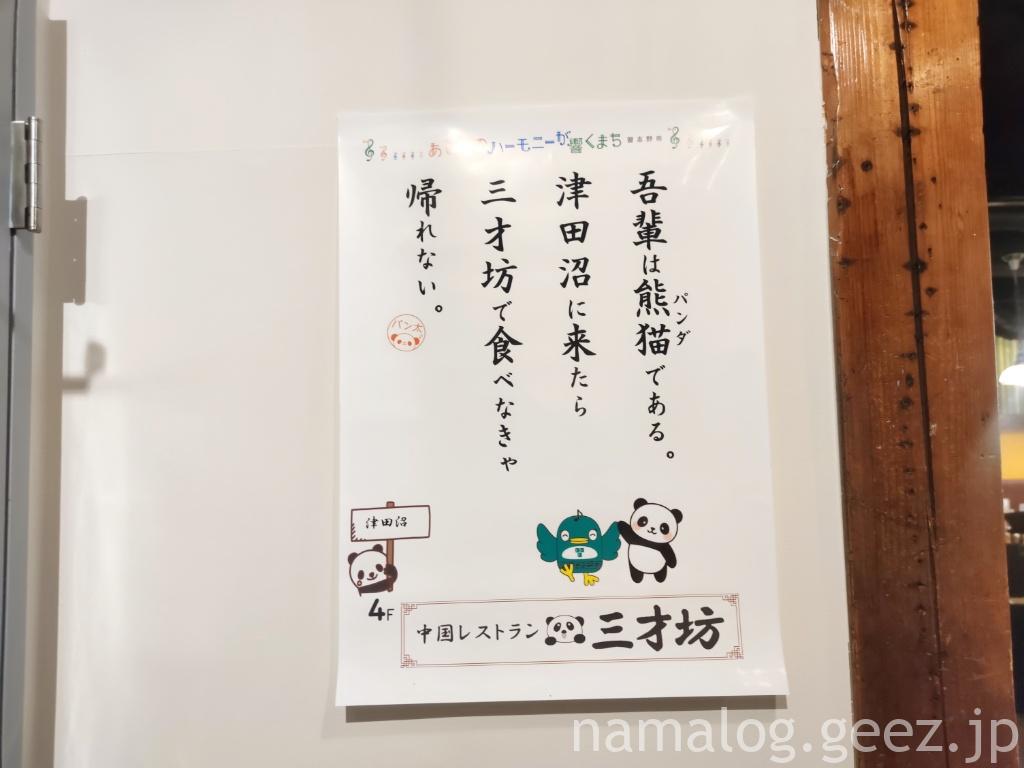 ハーモニーが響くまち 習志野市
吾輩は熊猫である。
パンダ
津田沼に来たら
三才坊で食べなきゃ
帰れない。
パン太
津田沼
4F
中国レストラン 三才坊
namalog.geez.jp